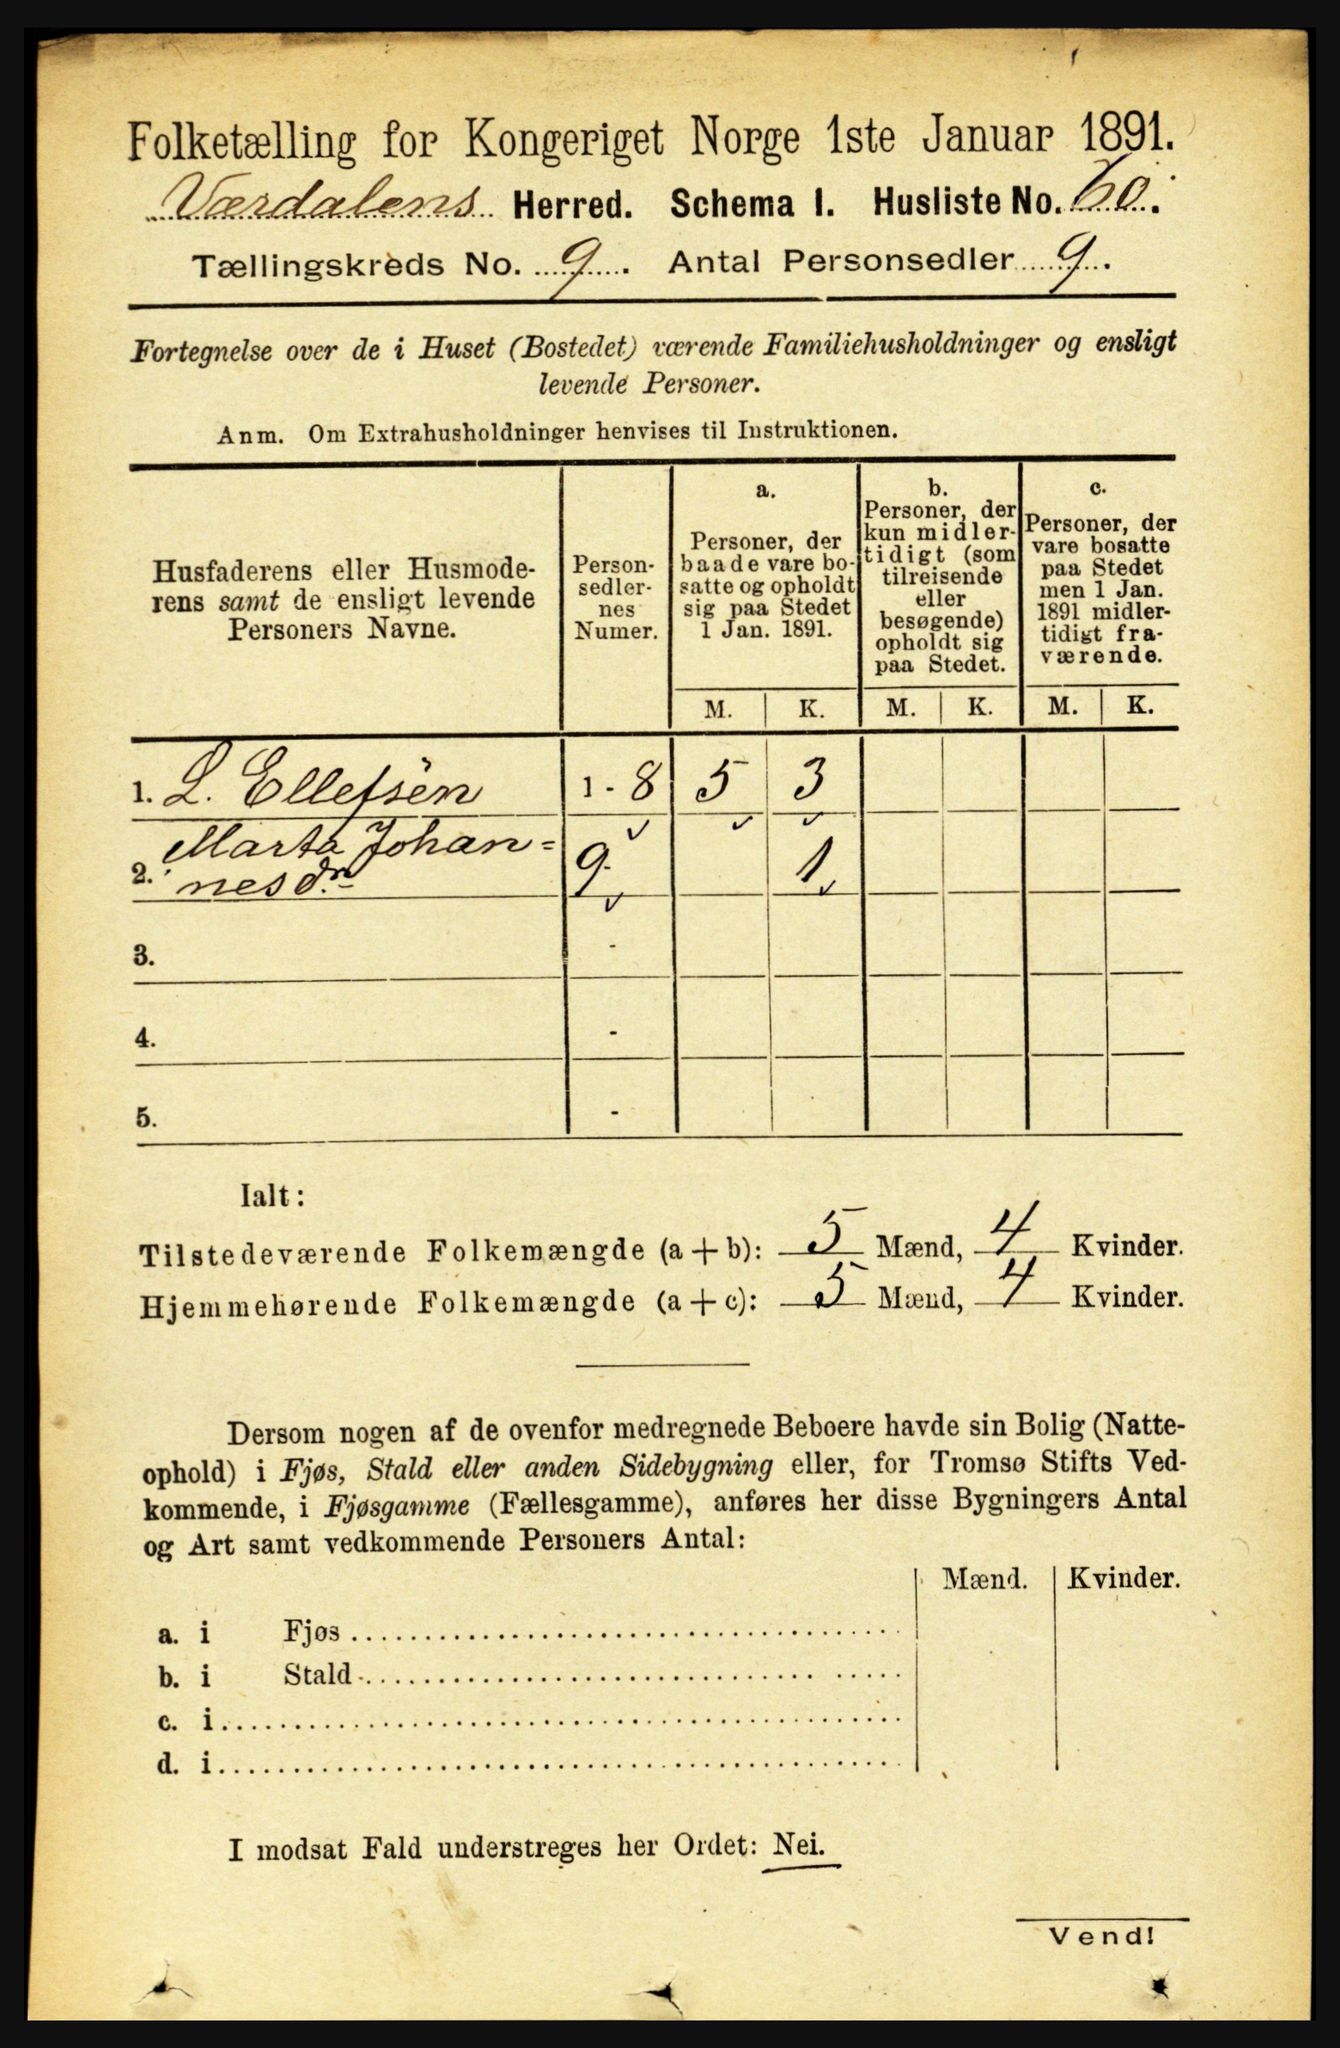 Folketælling for Kongeriget Norge 1ste Januar 1891.
Værdalens Herred. Schema 1. Husliste No. 60.
Tællingskreds No. 9. Antal Personsedler 9.
Fortegnelse over de i Huset (Bostedet) værende Familiehusholdninger og ensligt
levende Personer.
Anm. Om Extrahusholdninger henvises til Instruktionen.
Husfaderens eller Husmode-
rens samt de ensligt levende
Personers Navne.
Person-
sedler-
nes
Numer.
a.
Personer, der
baade vare bo-
satte og opholdt
sig paa Stedet
1 Jan. 1891.
b.
Personer, der
kun midler-
tidigt (som
tilreisende
eller
besøgende)
opholdt sig
paa Stedet.
c.
Personer, der
vare bosatte
paa Stedet
men 1 Jan.
1891 midler-
tidigt fra-
værende.
M. K. M. K. M. K.
1. L. Ellefsen 1 - 8 5 3
Marta Johan=
2. nesdr 9 - 1
3. -
4. -
5. -
Ialt:
Tilstedeværende Folkemængde (a + b): 5 Mænd, 4 Kvinder.
Hjemmehørende Folkemængde (a + c): 5 Mænd, 4 Kvinder.
Dersom nogen af de ovenfor medregnede Beboere havde sin Bolig (Natte-
ophold) i Fjøs, Stald eller anden Sidebygning eller, for Tromsø Stifts Ved-
kommende, i Fjøsgamme (Fællesgamme), anføres her disse Bygningers Antal
og Art samt vedkommende Personers Antal:
Mænd. Kvinder.
a. i Fjøs
b. i Stald
c. i
d. i
I modsat Fald understreges her Ordet: Nei.
Vend!